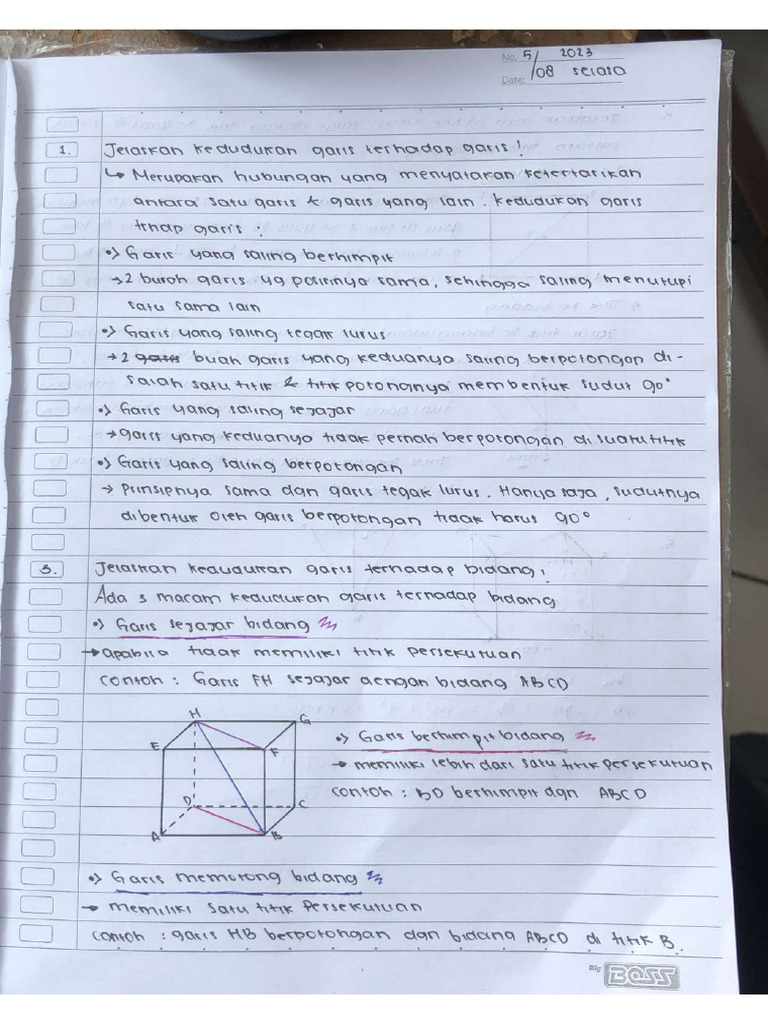 No. 5/ 2023
Date: /08 selasa
1. Jelaskan kedudukan garis terhadap garis!
↳ Merupakan hubungan yang menyatakan ketertarikan
antara satu garis & garis yang lain. kedudukan garis
trhdap garis :
•) Garis yang saling berhimpit
→ 2 buah garis yg posisinya sama, sehingga saling menutupi
satu sama lain
•) Garis yang saling tegak lurus
→ 2 garis buah garis yang keduanya saling berpotongan di-
salah satu titik & titik potongnya membentuk sudut 90°
•) Garis yang saling sejajar
→ garis yang keduanya tidak pernah berpotongan di suatu titik
•) Garis yang saling berpotongan
→ prinsipnya sama dgn garis tegak lurus. Hanya saja, sudutnya
dibentuk oleh garis berpotongan tidak harus 90°
3. Jelaskan kedudukan garis terhadap bidang!
Ada 3 macam kedudukan garis terhadap bidang
•) Garis sejajar bidang
→ apabila tidak memiliki titik persekutuan
contoh : Garis FH sejajar dengan bidang ABCD
H G
E F
D C
A B
•) Garis berhimpit bidang
→ memiliki lebih dari satu titik persekutuan
contoh : BD berhimpit dgn ABCD
•) Garis memotong bidang
→ memiliki satu titik persekutuan
contoh : garis HB berpotongan dgn bidang ABCD di titik B.
Big BOSS